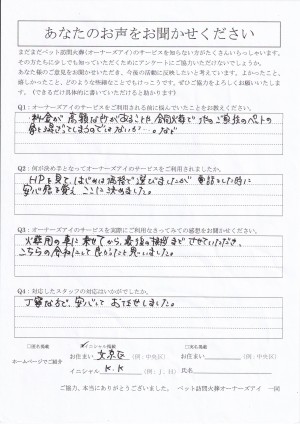 あなたのお声をお聞かせください
まだまだペット訪問火葬(オーナーズアイ)のサービスを知らない方がたくさんいらっしゃいます。
その方たちに少しでも知っていただくためにアンケートにご協力いただけないでしょうか。
あなた様のご意見をお聞かせいただき、今後の活動に反映したいと考えています。よかったこと、
嬉しかったこと、どのような些細なことでもけっこうです。ぜひご協力をよろしくお願いいたし
ます。(できるだけ具体的に書いていただけると助かります)
Q1:オーナーズアイのサービスをご利用される前に悩んでいたことをお書きください。
料金が高額な
Q2:何が決め手となってオーナーズアイのサービスをご利用されましたか。
HPを見て、はじめは価格で選びましたが電話した時に
安心感を覚えここに決めました。
Q3:オーナーズアイのサービスを実際にご利用なさってみての感想をお聞かせください。
火葬用の車に乗せてから、最後の挨拶までさせていただき、
こちらの会社にして良かったと思いました。
Q4:対応したスタッフの対応はいかがでしたか。
丁寧な方で、安心しておまかせしました。
□実名掲載 イニシャル掲載 □匿名掲載
ホームページでご紹介
お住まい 文京区 (例:中央区) お住まい (例:中央区)
イニシャル K.K (例:J.H) 氏名
ご協力、本当にありがとうございました。 ペット訪問火葬オーナーズアイ 一同